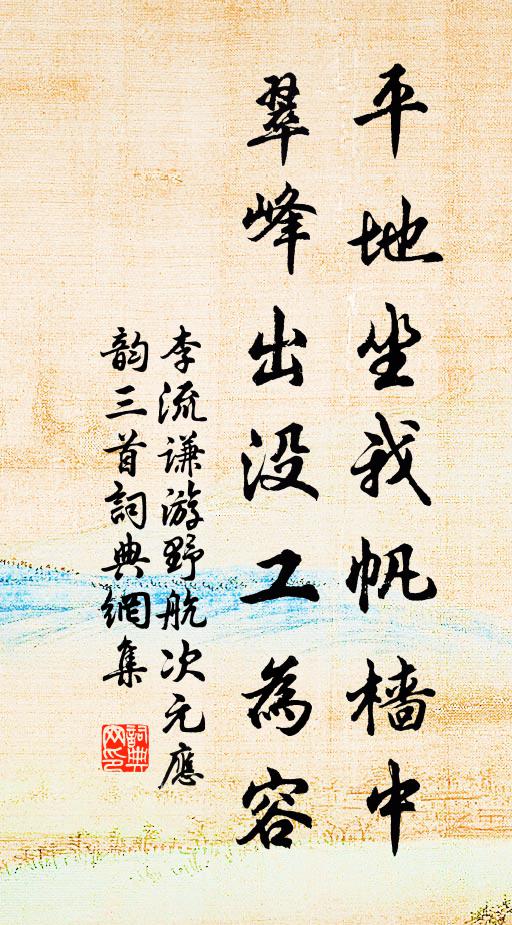 平地坐我帆檣中
翠峰出没工為容
李流謙游野航次元應
韵三首詞典網集
詞典网印